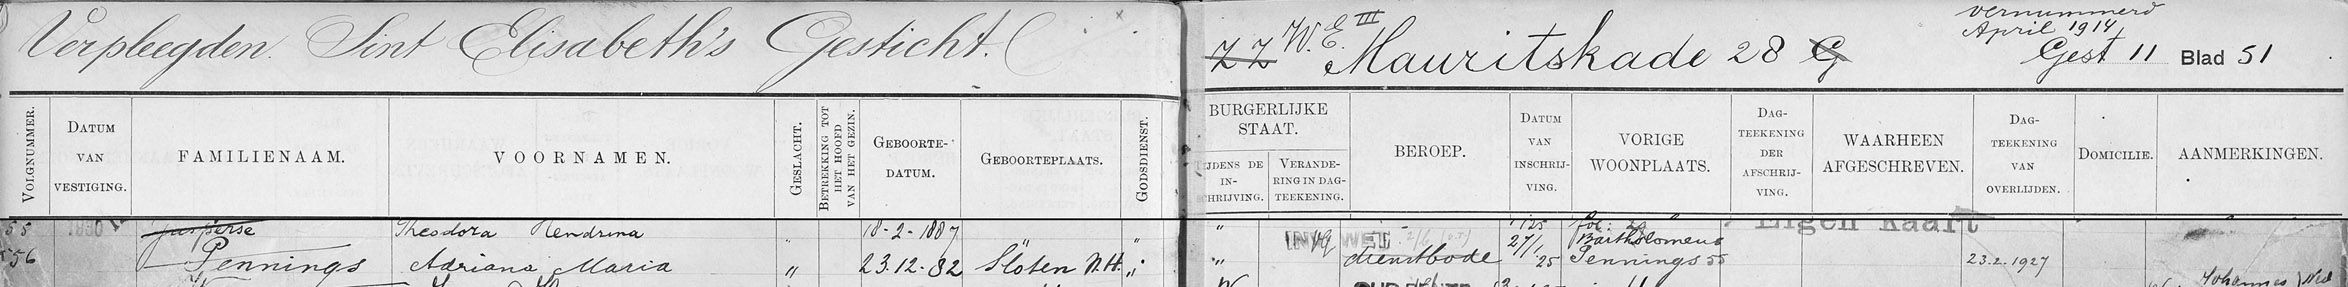 Verpleegden. Sint Elisabeth's Gesticht.
Z Z W. E. III Mauritskade 28 G
vernummerd
April 1914
Gest 11 Blad 51
VOLGNUMMER.
DATUM
VAN
VESTIGING.
FAMILIENAAM.
VOORNAMEN.
GESLACHT.
BETREKKING TOT
HET HOOFD
VAN HET GEZIN.
GEBOORTE-
DATUM.
GEBOORTEPLAATS.
GODSDIENST.
BURGERLIJKE
STAAT.
TIJDENS DE
IN-
SCHRIJVING.
VERANDE-
RING IN DAG-
TEEKENING.
BEROEP.
DATUM
VAN
INSCHRIJ-
VING.
VORIGE
WOONPLAATS.
DAG-
TEEKENING
DER
AFSCHRIJ-
VING.
WAARHEEN
AFGESCHREVEN.
DAG-
TEEKENING
VAN
OVERLIJDEN.
DOMICILIE.
AANMERKINGEN.
55 Jasperse Theodora Hendrina 18-2-1887 " " Eigen Kaart
556 Pennings Adriana Maria " 23.12.82 Sloten N.H. " " dienstbode 27/1 25 Bartholomeus
Pennings 55 23.2.1927
Johannes